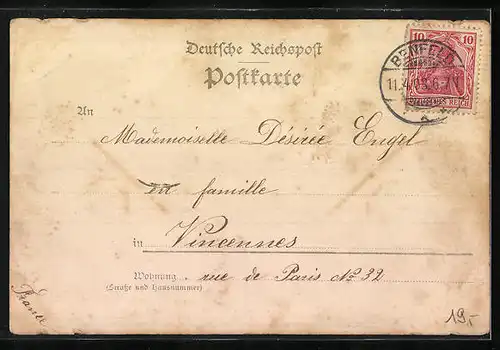 Deutsche Reichspost
Postkarte
10 10
BENFELD
11.4.03.6-7
REICH
An
Mademoiselle Désirée Engel
en famille
in Vincennes
Wohnung rue de Paris No 32
(Straße und Hausnummer)
France
19,-